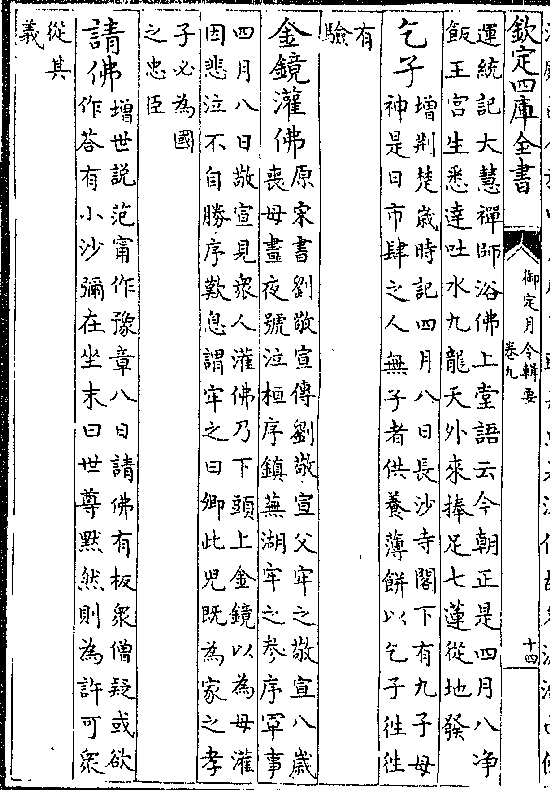 欽定四庫全書
御定月令輯要
卷九
十四
運統記大慧禪師浴佛上堂語云今朝正是四月八净
飯王宫生悉達吐水九龍天外來捧足七蓮從地發
乞子
增荆楚歲時記四月八日長沙寺閣下有九子母
神是日市肆之人無子者供養薄餅以乞子徃徃
有
驗
金鏡灌佛
原宋書劉敬宣傳劉敬宣父牢之敬宣八歲
喪母晝夜號泣桓序鎮蕪湖牢之參序軍事
四月八日敬宣見衆人灌佛乃下頭上金鏡以為母灌
因悲泣不自勝序歎息謂牢之曰卿此兒既為家之孝
子必為國
之忠臣
請佛
增世説范甯作豫章八日請佛有板衆僧疑或欲
作荅有小沙彌在坐末曰世尊黙然則為許可衆
從其
義